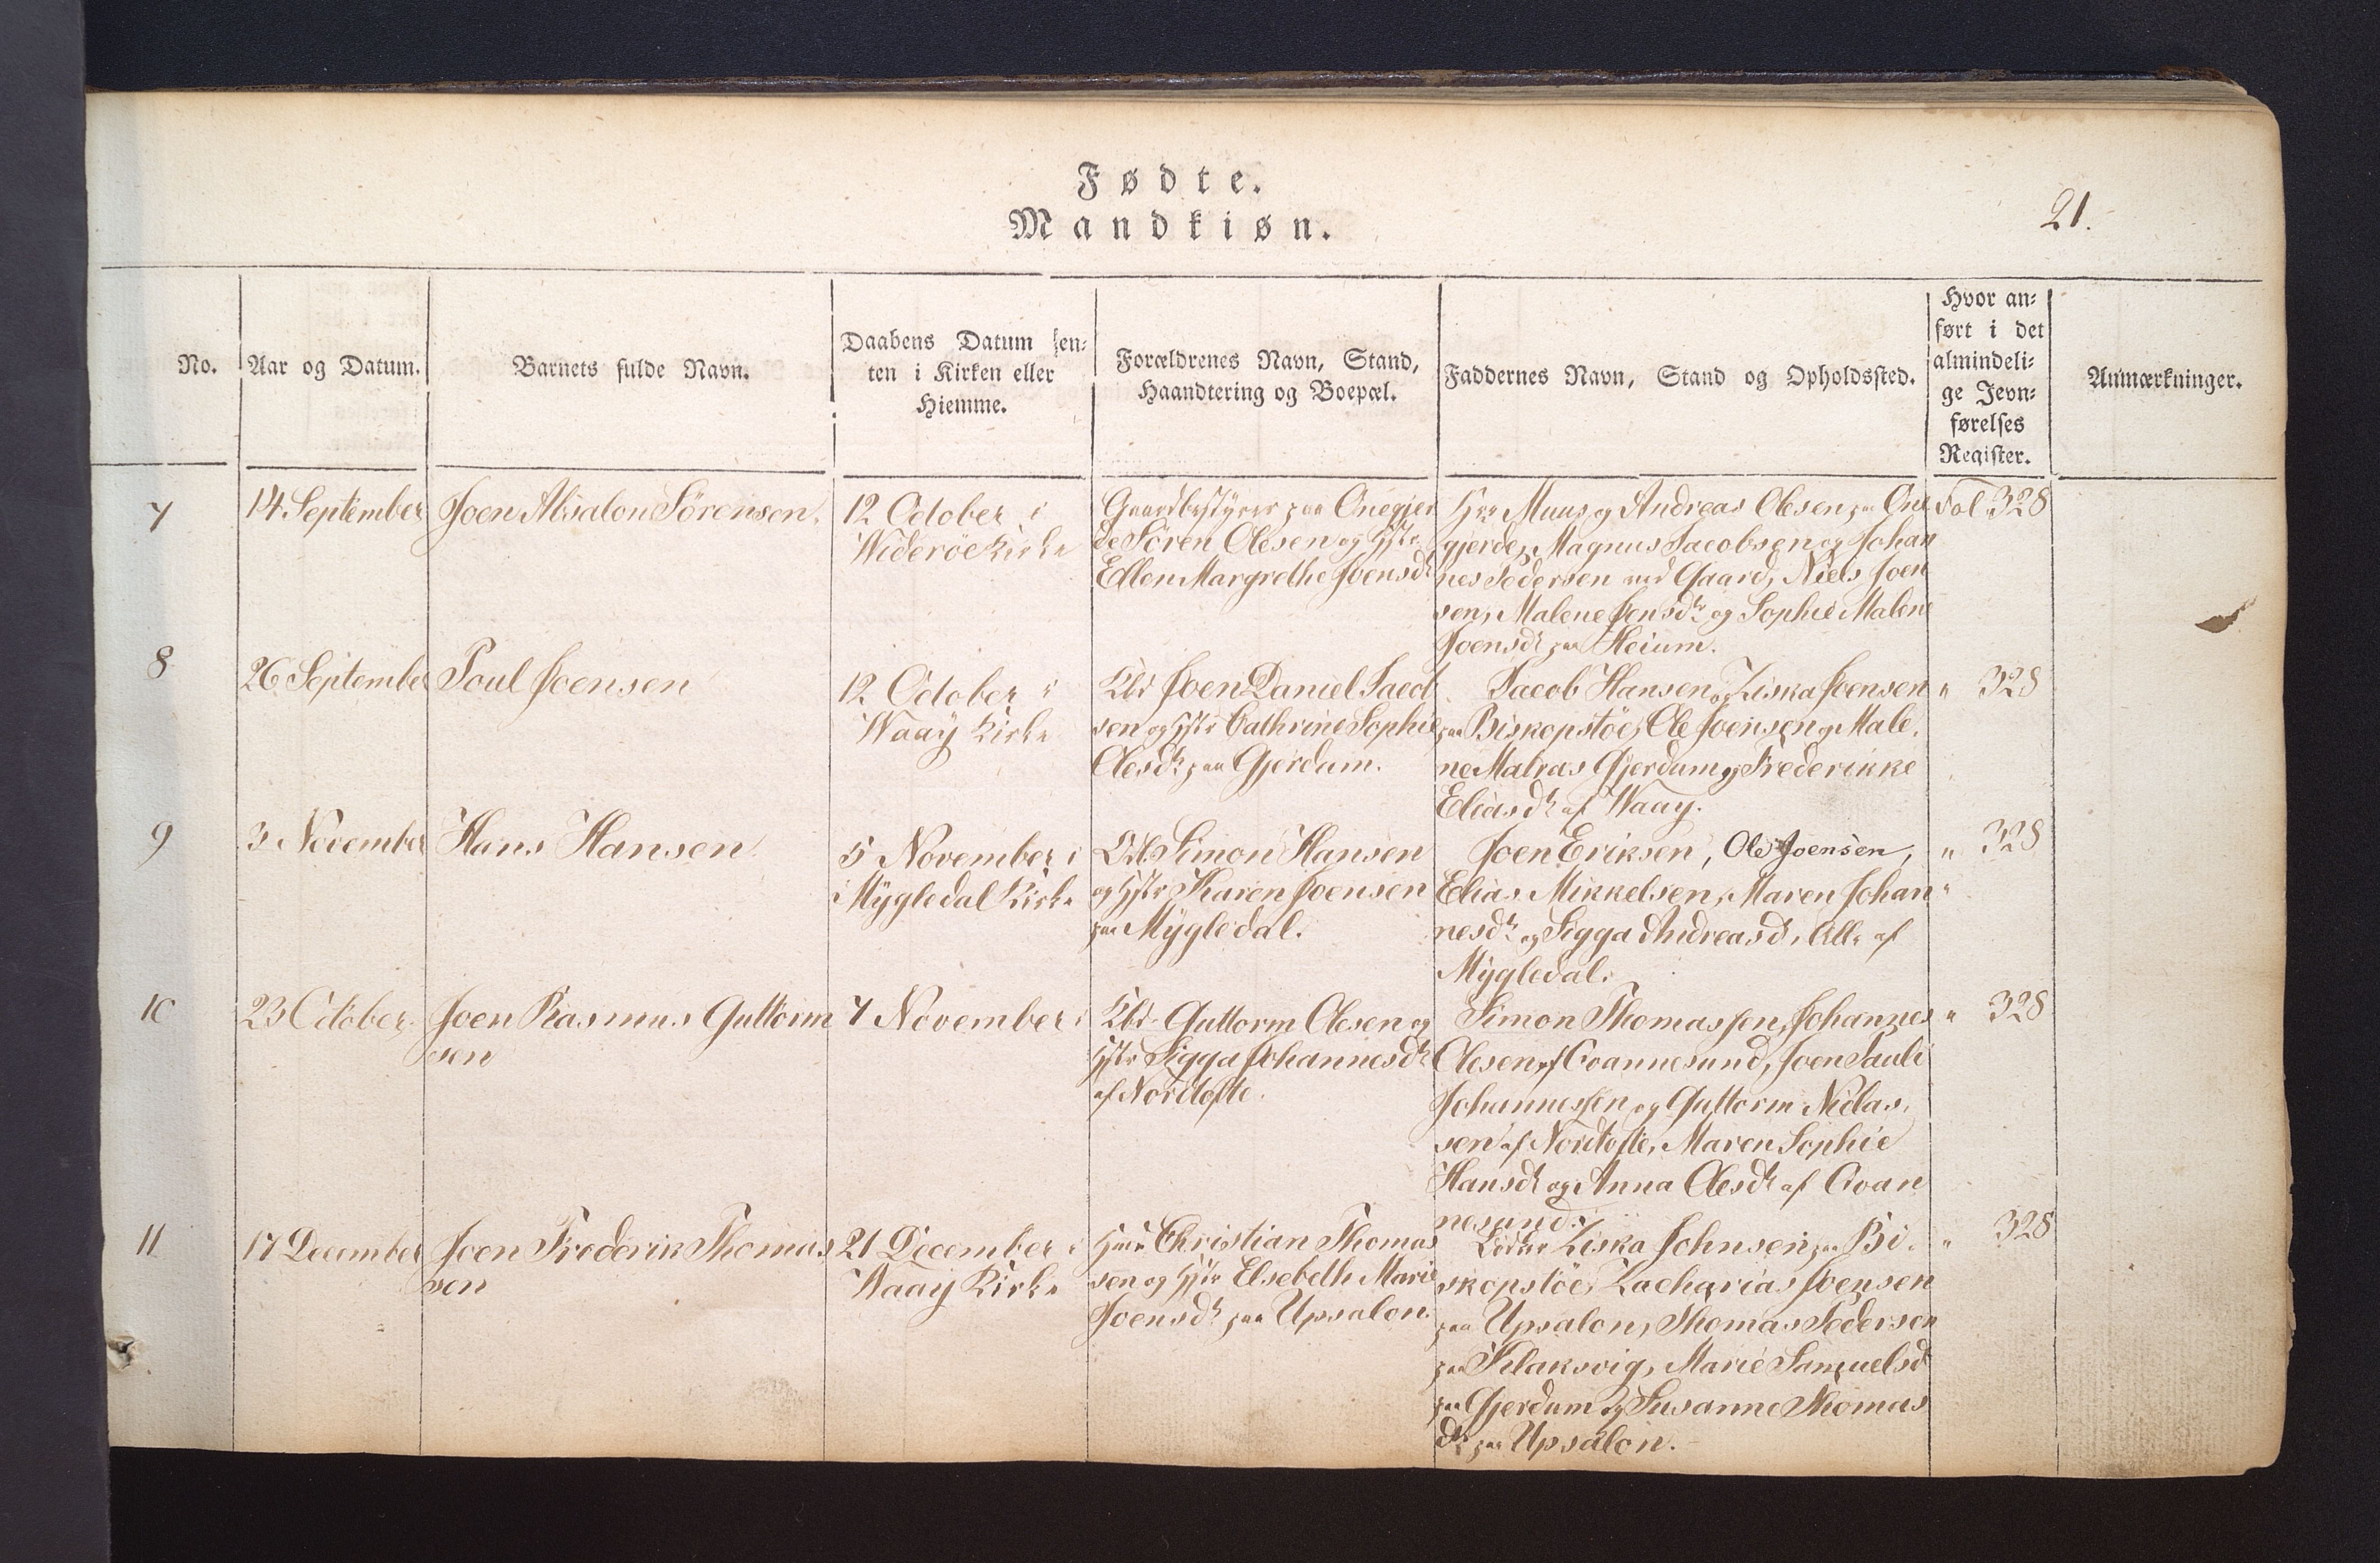 Fødte.
Mandkiøn.
21.
No.
Aar og Datum.
Barnets fulde Navn.
Daabens Datum sen-
ten i Kirken eller
Hiemme.
Forældrenes Navn, Stand,
Haandtering og Boepæl.
Faddernes Navn, Stand og Opholdssted.
Hvor an-
ført i det
almindeli-
ge Jevn-
førelses
Register.
Anmærkninger.
7
14 September
Joen Absalon Sörensen.
12 October i
Wideröe Kirke
Gaardbestyrer paa Onegjer
de Sören Olesen og Hstr
Ellen Margrethe Joensdr
Hrr Muus og Andreas Olesen paa One
gjerde, Magnus Jacobsen og Johan
nes Pedersen ved Gaard, Niels Joen
sen, Malene Jensdr og Sophie Malene
Joensdr paa Heium.
Fol 328
8
26 September
Poul Joensen
12 October i
Waaÿ Kirke
Joen Daniel Jacob
sen og Hstr Cathrine Sophie
Olesdr paa Gjerdum.
Jacob Hansen og Ziska Joensen
paa Biskopstöe, Ole Joensen og Male,
ne Malras Gjerdum og Frederikke
Eliasdr af Waay.
" 328
9
3 November
Hans Hansen
5 November i
i Mÿgledal Kirke
Simon Hansen
og Hstr Karen Joensen
paa Mÿgledal.
Joen Eriksen, Ole Joensen,
Elias Mikkelsen, Maren Johan
nesdr og Sigga Andreasd. Alle af
Mÿgledal.
" 328
"
10
23 October
Joen Rasmus Guttorm
sen
7 November i
Guttorm Olesen og
Hstr Sigga Johannesdr
af Nordtofte.
Simon Thomassen, Johannes
Olesen af Qvannesund, Joen Pauli
Johannessen og Guttorm Niclas,
sen af Nordtofte, Maren Sophie
Hansdr og Anna Olesdr af Qvan
nesund.
" 328
11
17 December
Joen Frederik Thomas
sen
21 December i
Waaÿ Kirke
Christian Thomas
sen og Hstr Elsebeth Marie
Joensdr paa Upsalon.
Ziska Johnsen paa Bi-
skopstöe, Zacharias Joensen
paa Upsalon, Thomas Pedersen
paa Klaksvig, Marie Samuelsd
paa Gjerdum og Susanne Thomas
dr paa Upsalon.
" 328